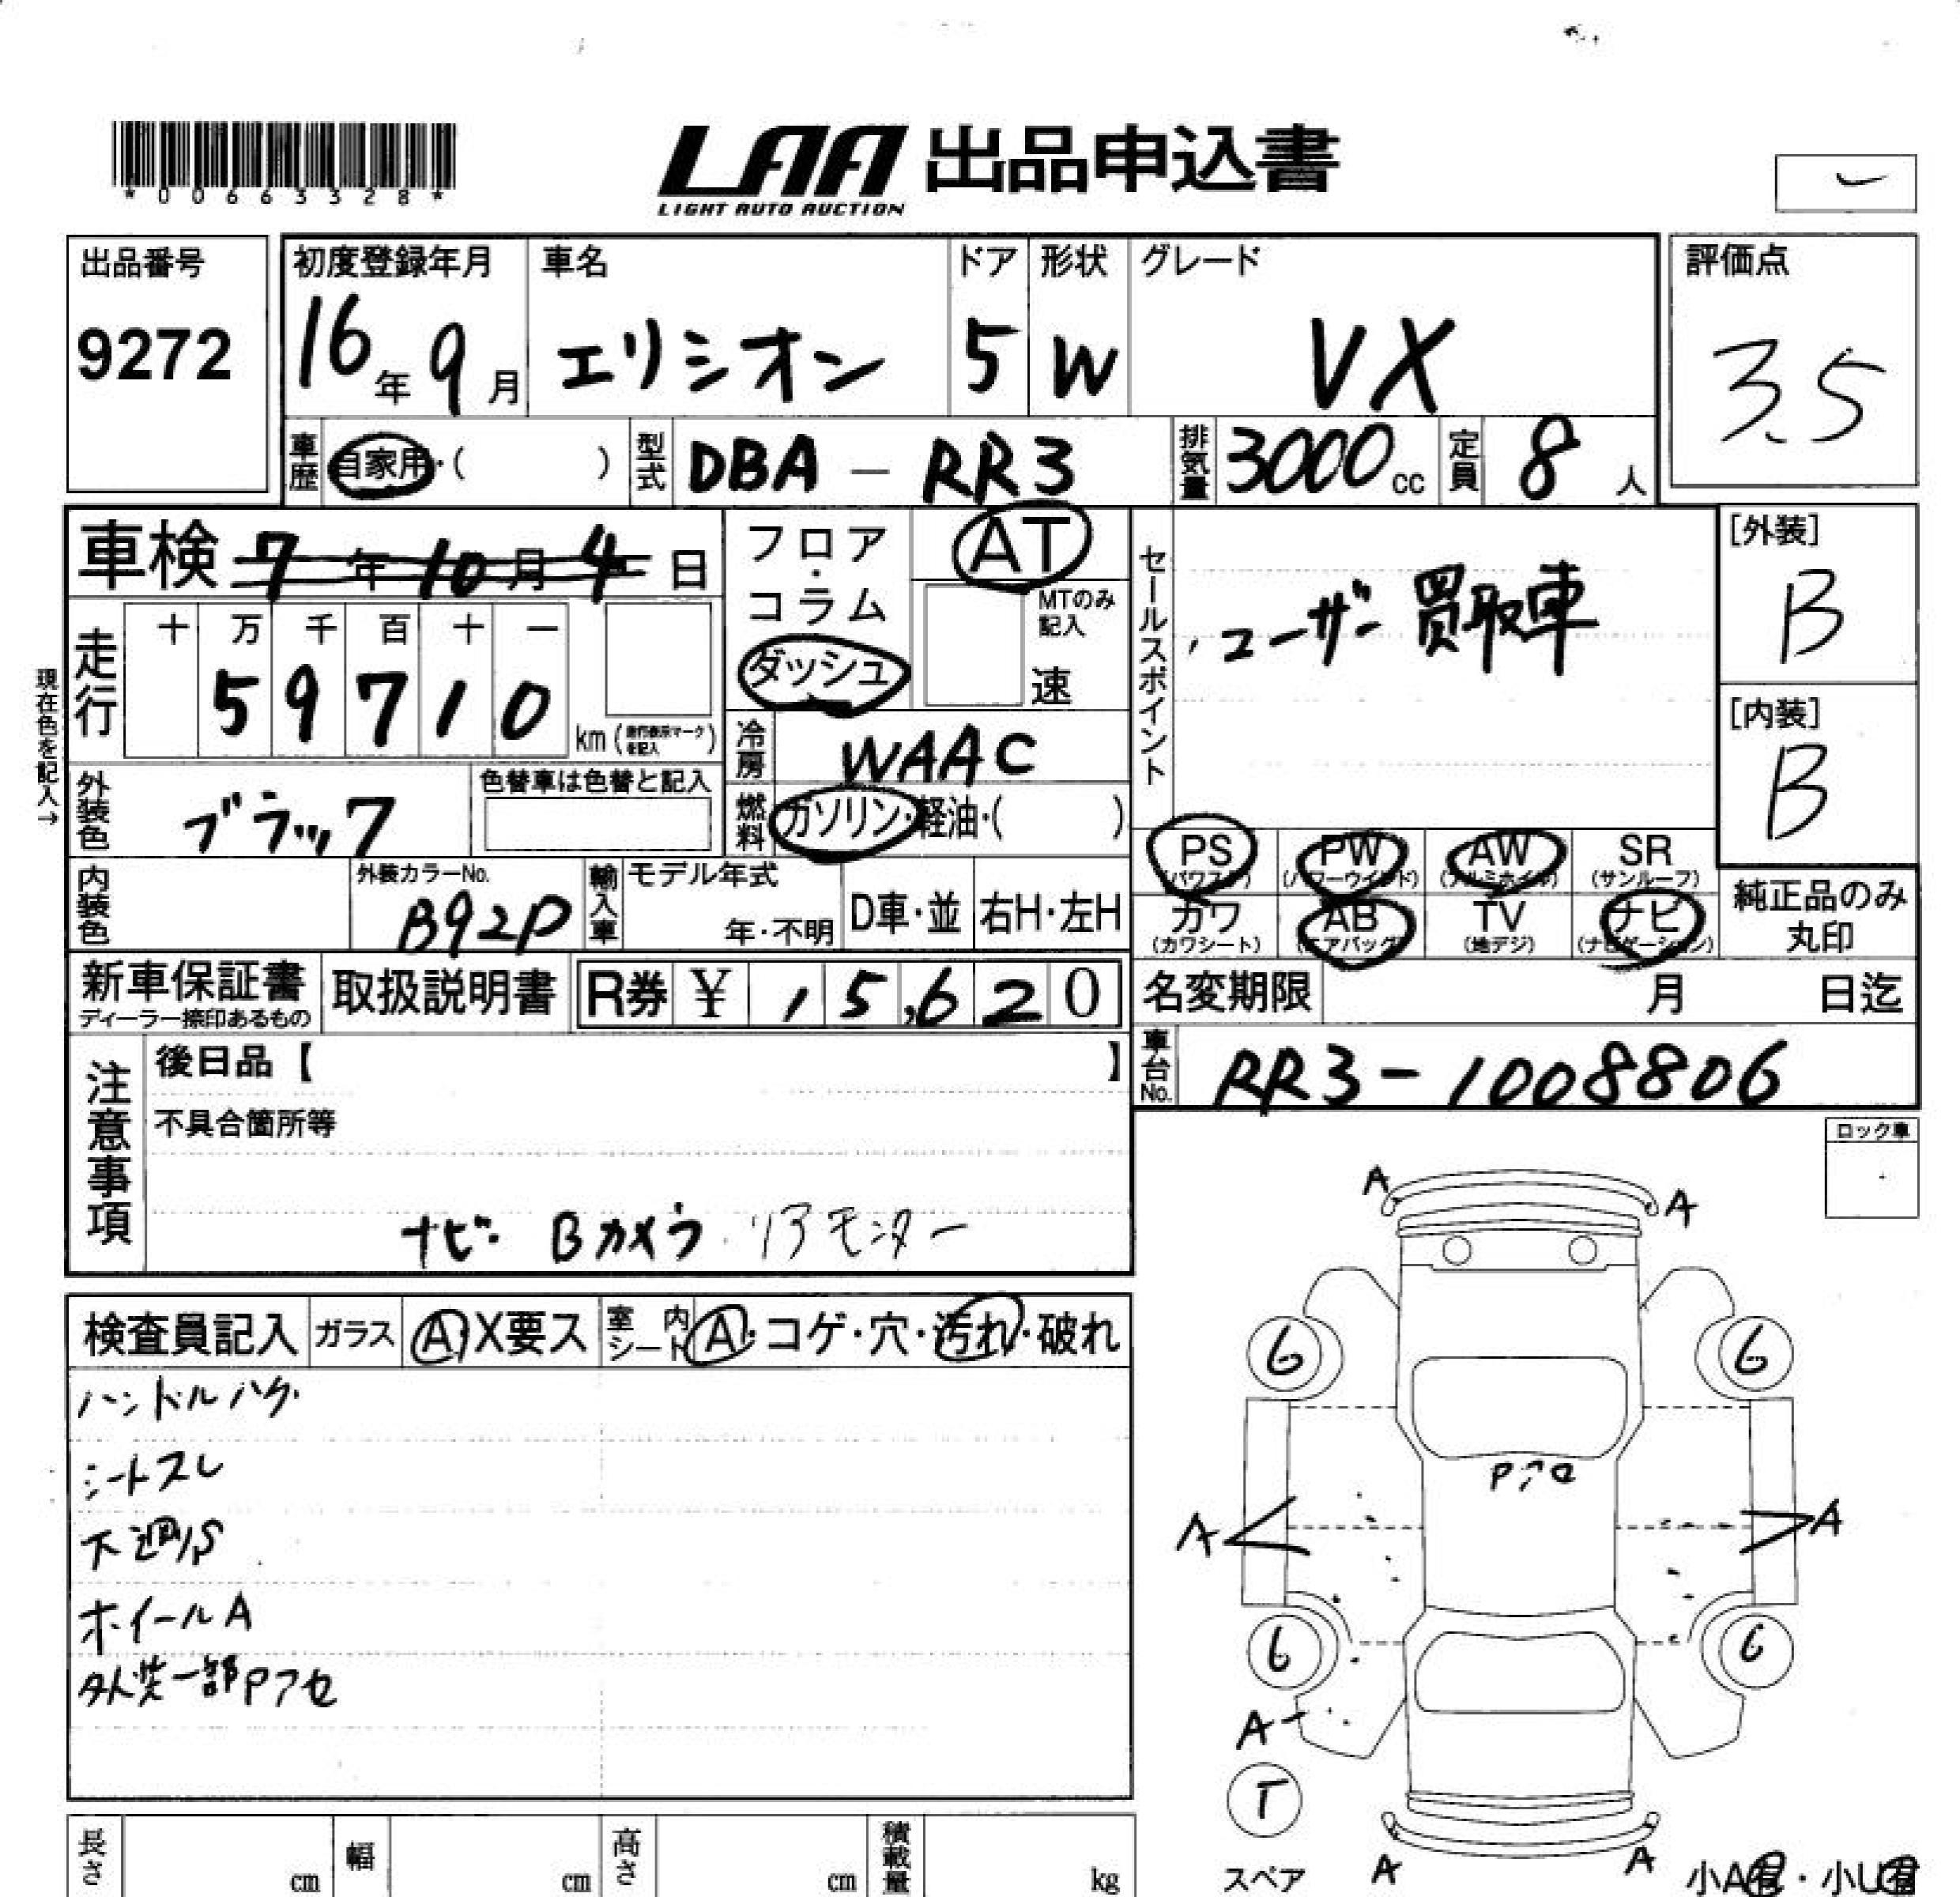 *00663328*
LAA 出品申込書
LIGHT AUTO AUCTION
出品番号
9272
初度登録年月
16年9月
車名
エリシオン
ドア
5
形状
W
グレード
VX
評価点
3.5
車歴 自家用・( )
型式 DBA-RR3
排気量 3000cc
定員 8人
車検 7年10月4日
フロア・コラム
ダッシュ
AT
MTのみ記入
速
セールスポイント
ユーザー買取車
[外装]
B
[内装]
B
現在色を記入→
走行
十 万 千 百 十 一
5 9 7 1 0
km (走行表示マークを記入)
冷房 WAAC
燃料 ガソリン・軽油・( )
外装色 ブラック
色替車は色替と記入
内装色
外装カラーNo.
B92P
輸入車
モデル年式
年・不明
D車・並
右H・左H
PS (パワステ)
PW (パワーウインド)
AW (アルミホイル)
SR (サンルーフ)
カワ (カワシート)
AB (エアバッグ)
TV (地デジ)
ナビ (ナビゲーション)
純正品のみ
丸印
新車保証書
ディーラー捺印あるもの
取扱説明書
R券 ¥ 15,620
名変期限 月 日迄
車台No. RR3-1008806
注意事項
後日品【 】
不具合箇所等
ナビ・Bカメラ・リアモニター
ロック車
検査員記入
ガラス A・X要ス
室内シート A・コゲ・穴・汚れ・破れ
ハンドルハゲ
シートスレ
下廻りS
ホイールA
外装一部Pアセ
A A
6 6
Pアセ
A A
6 6
A
T
スペア
A A
小A有・小U有
長さ cm
幅 cm
高さ cm
積載量 kg